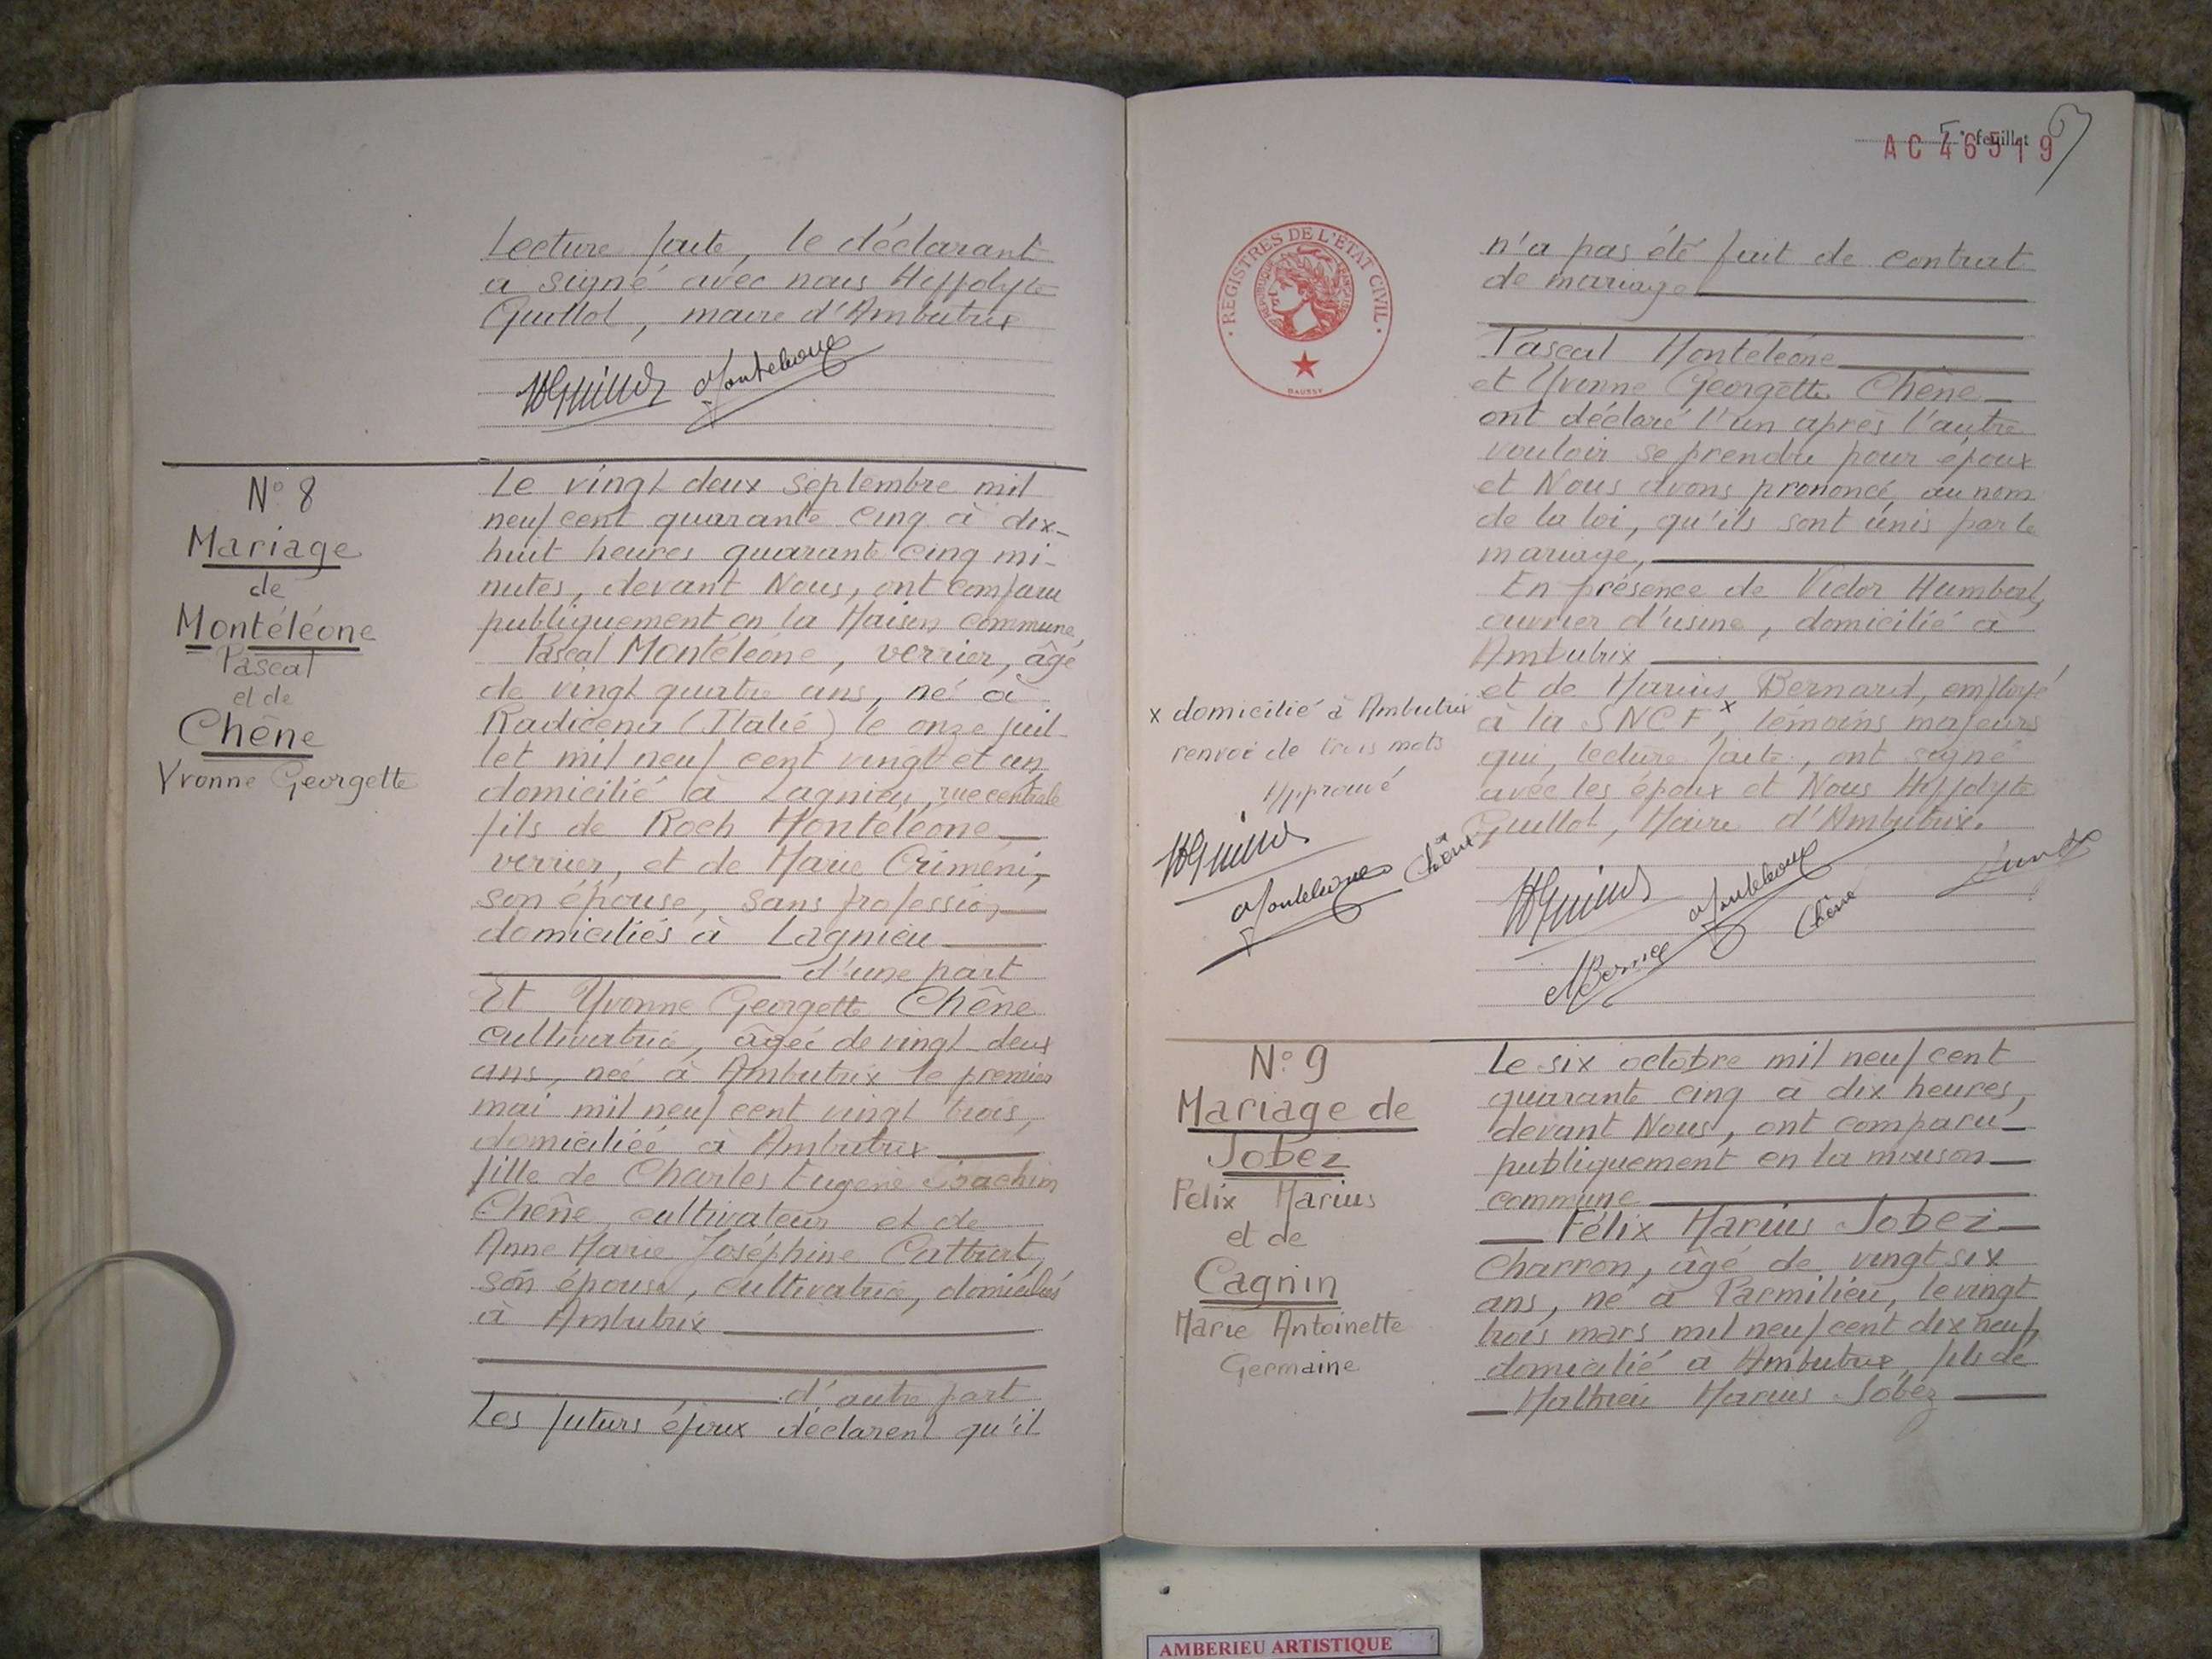 Lecture faite, le déclarant
a signé avec nous Hippolyte
Guillot, maire d'Ambutrix
HGuillot Monteleone
N° 8
Mariage
de
Montéléone
Pascal
et de
Chêne
Yvonne Georgette
Le vingt deux septembre mil
neuf cent quarante cinq à dix-
huit heures quarante cinq mi-
nutes, devant Nous, ont comparu
publiquement en la Maison commune,
Pascal Montéléone, verrier, âgé
de vingt quatre ans, né à
Radicena (Italie) le onze juil-
let mil neuf cent vingt et un,
domicilié à Lagnieu, rue centrale
fils de Roch Montéléone
verrier, et de Marie Criméni,
son épouse, sans profession
domiciliés à Lagnieu
d'une part
Et Yvonne Georgette Chêne
cultivatrice, âgée de vingt-deux
ans, née à Ambutrix le premier
mai mil neuf cent vingt trois,
domiciliée à Ambutrix
fille de Charles Eugène Joachim
Chêne, cultivateur et de
Anne Marie Joséphine
son épouse, cultivatrice, domiciliés
à Ambutrix
d'autre part
Les futurs époux déclarent qu'il
5e feuillet
AC 46519
REGISTRES DE L'ÉTAT CIVIL
RÉPUBLIQUE FRANÇAISE
n'a pas été fait de contrat
de mariage
Pascal Montéléone
et Yvonne Georgette Chêne
ont déclaré l'un après l'autre
vouloir se prendre pour époux
et Nous avons prononcé, au nom
de la loi, qu'ils sont unis par le
mariage,
En présence de Victor Humbert,
ouvrier d'usine, domicilié à
Ambutrix
et de Marius Bernard, employé
à la SNCF x, témoins majeurs
qui, lecture faite, ont signé
avec les époux et Nous Hippolyte
Guillot, Maire d'Ambutrix.
x domicilié à Ambutrix
renvoi de trois mots
Approuvé
HGuillot
Monteleone Chêne
HGuillot Monteleone
Chêne
N° 9
Mariage de
Jobez
Felix Marius
et de
Cagnin
Marie Antoinette
Germaine
Le six octobre mil neuf cent
quarante cinq à dix heures,
devant Nous, ont comparu
publiquement en la maison
commune
Félix Marius Jobez
Charron, âgé de vingt six
ans, né à Parmilieu, le vingt
trois mars mil neuf cent dix neuf,
domicilié à Ambutrix, fils de
Mathieu Marius Jobez
AMBERIEU ARTISTIQUE